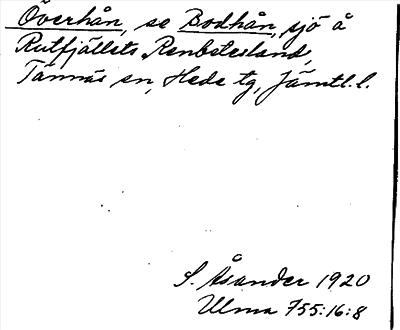 Överhån, se Bodhån, sjö å
Rutfjällets Renbetesland,
Tännäs sn, Hede tg, Jämtl. l.
S. Åsander 1920
Ulma 755:16:8